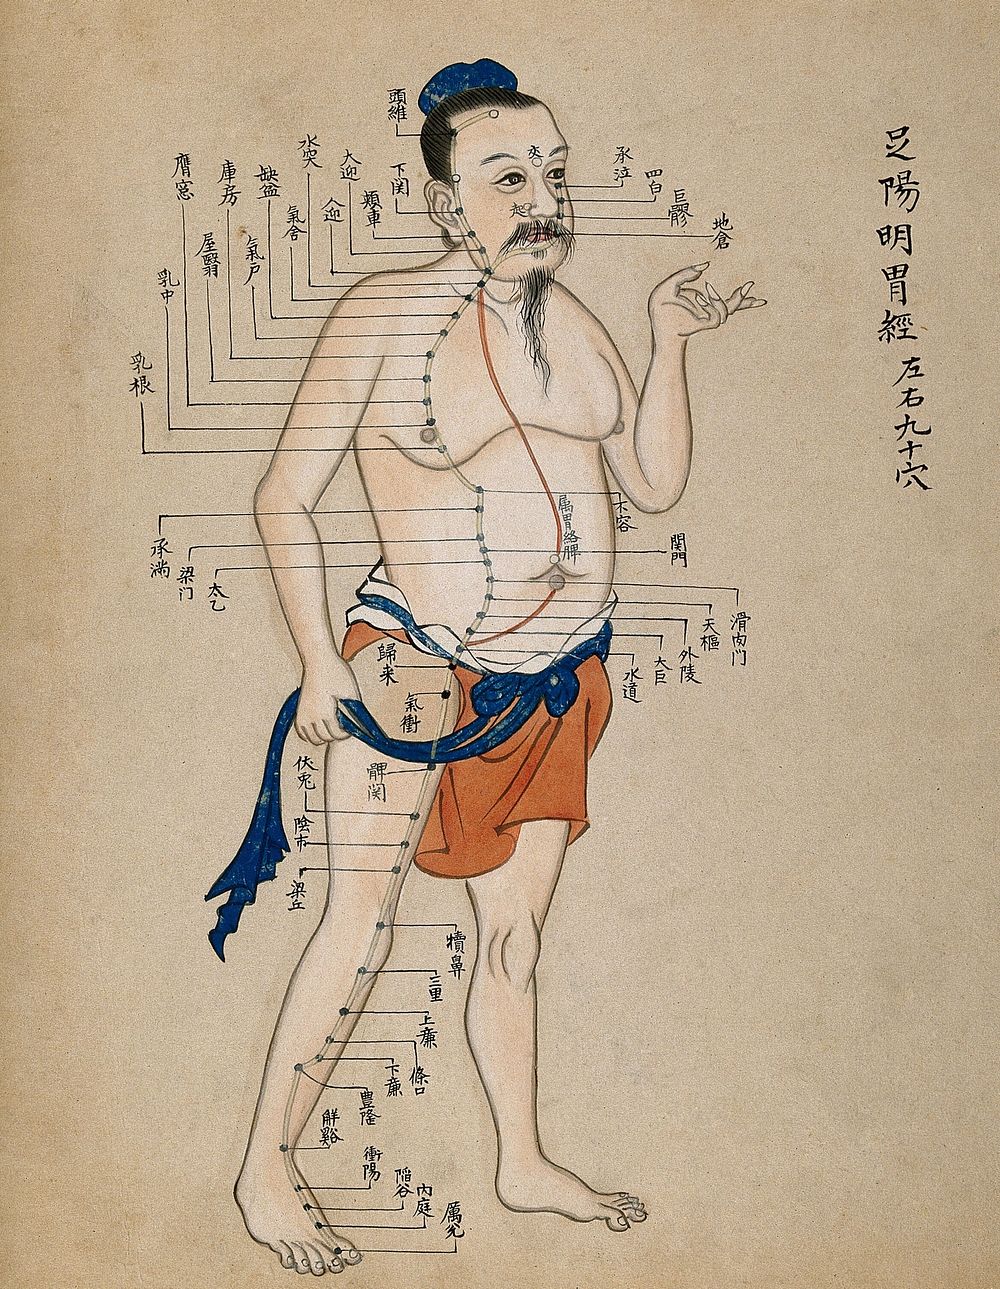 足陽明胃經 左右九十穴
頭維
下関
頬車
承泣
四白
巨髎
地倉
大迎
人迎
水突
氣舍
缺盆
氣戶
庫房
屋翳
膺窓
乳中
乳根
起
属胃絡脾
不容
承滿
梁门
関門
太乙
滑肉门
天樞
外陵
大巨
水道
歸来
氣衝
髀関
伏兎
陰市
梁丘
犢鼻
三里
上廉
條口
下廉
豊隆
觧谿
衝陽
陷谷
內庭
厲兌